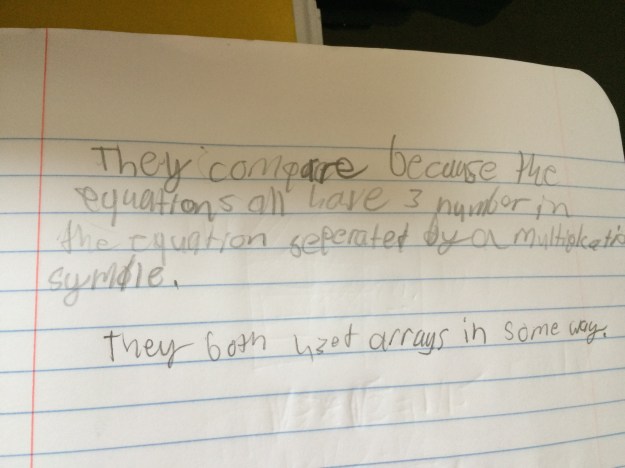 They compare because the
equations all have 3 number in
the equation seperated by a multiplicatio
symble.
They both used arrays in some way.